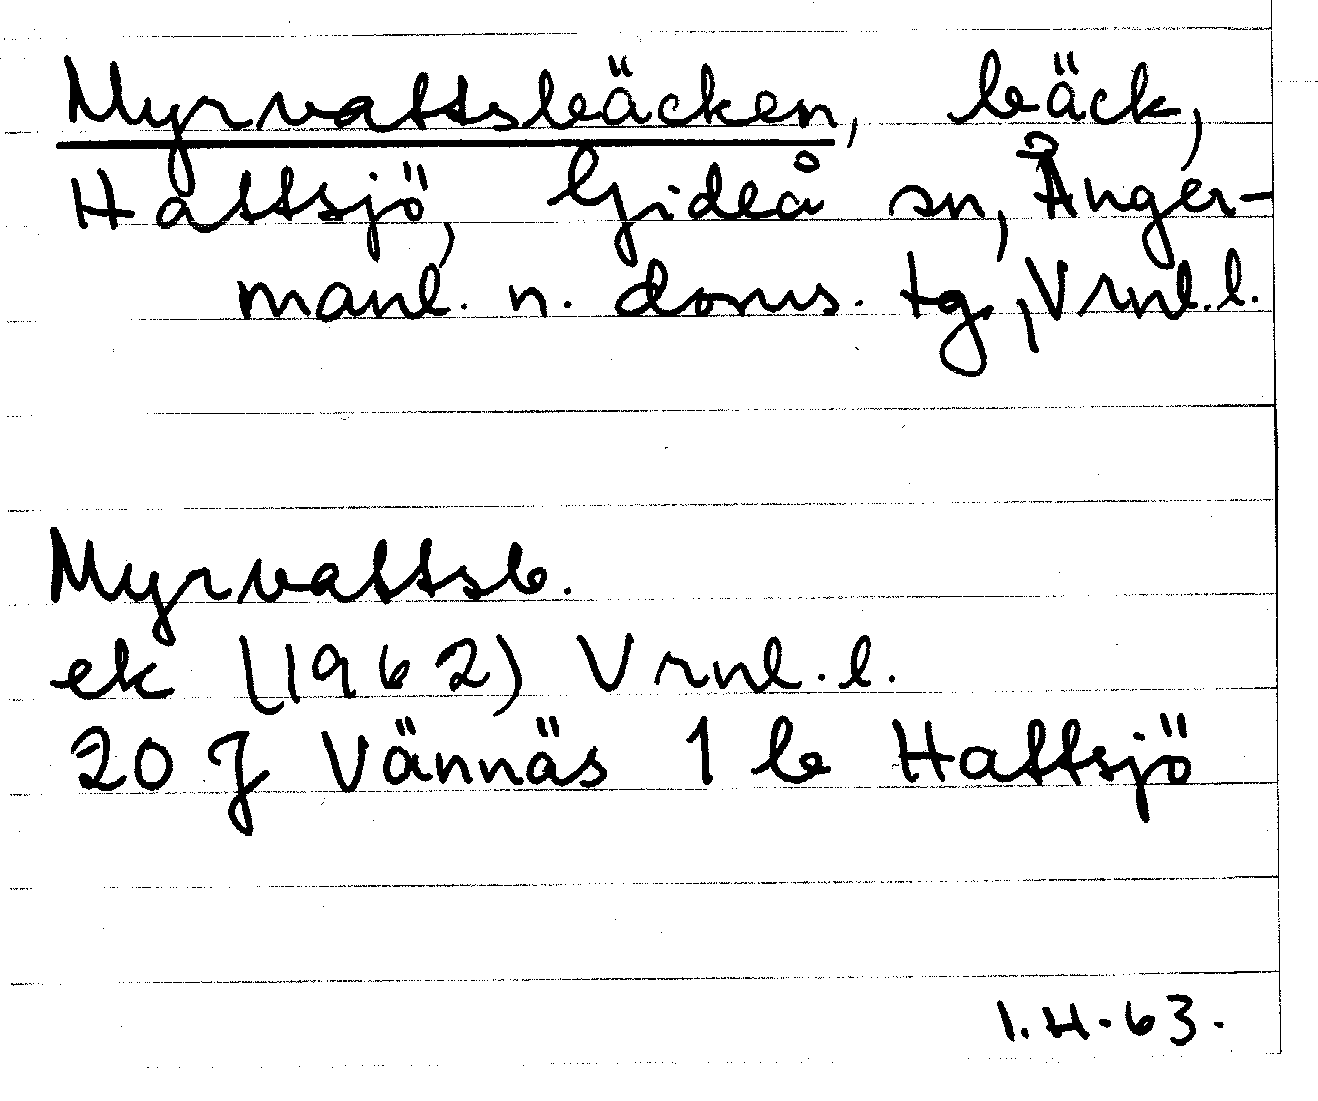 Myrvattsbäcken, bäck,
Hattsjö, Gideå sn, Ånger-
manl. n. doms. tg, Vrnl.l.
Myrvattsb.
ek (1962) Vrnl.l.
20 J Vännäs 1 b Hattsjö
I.H-63.